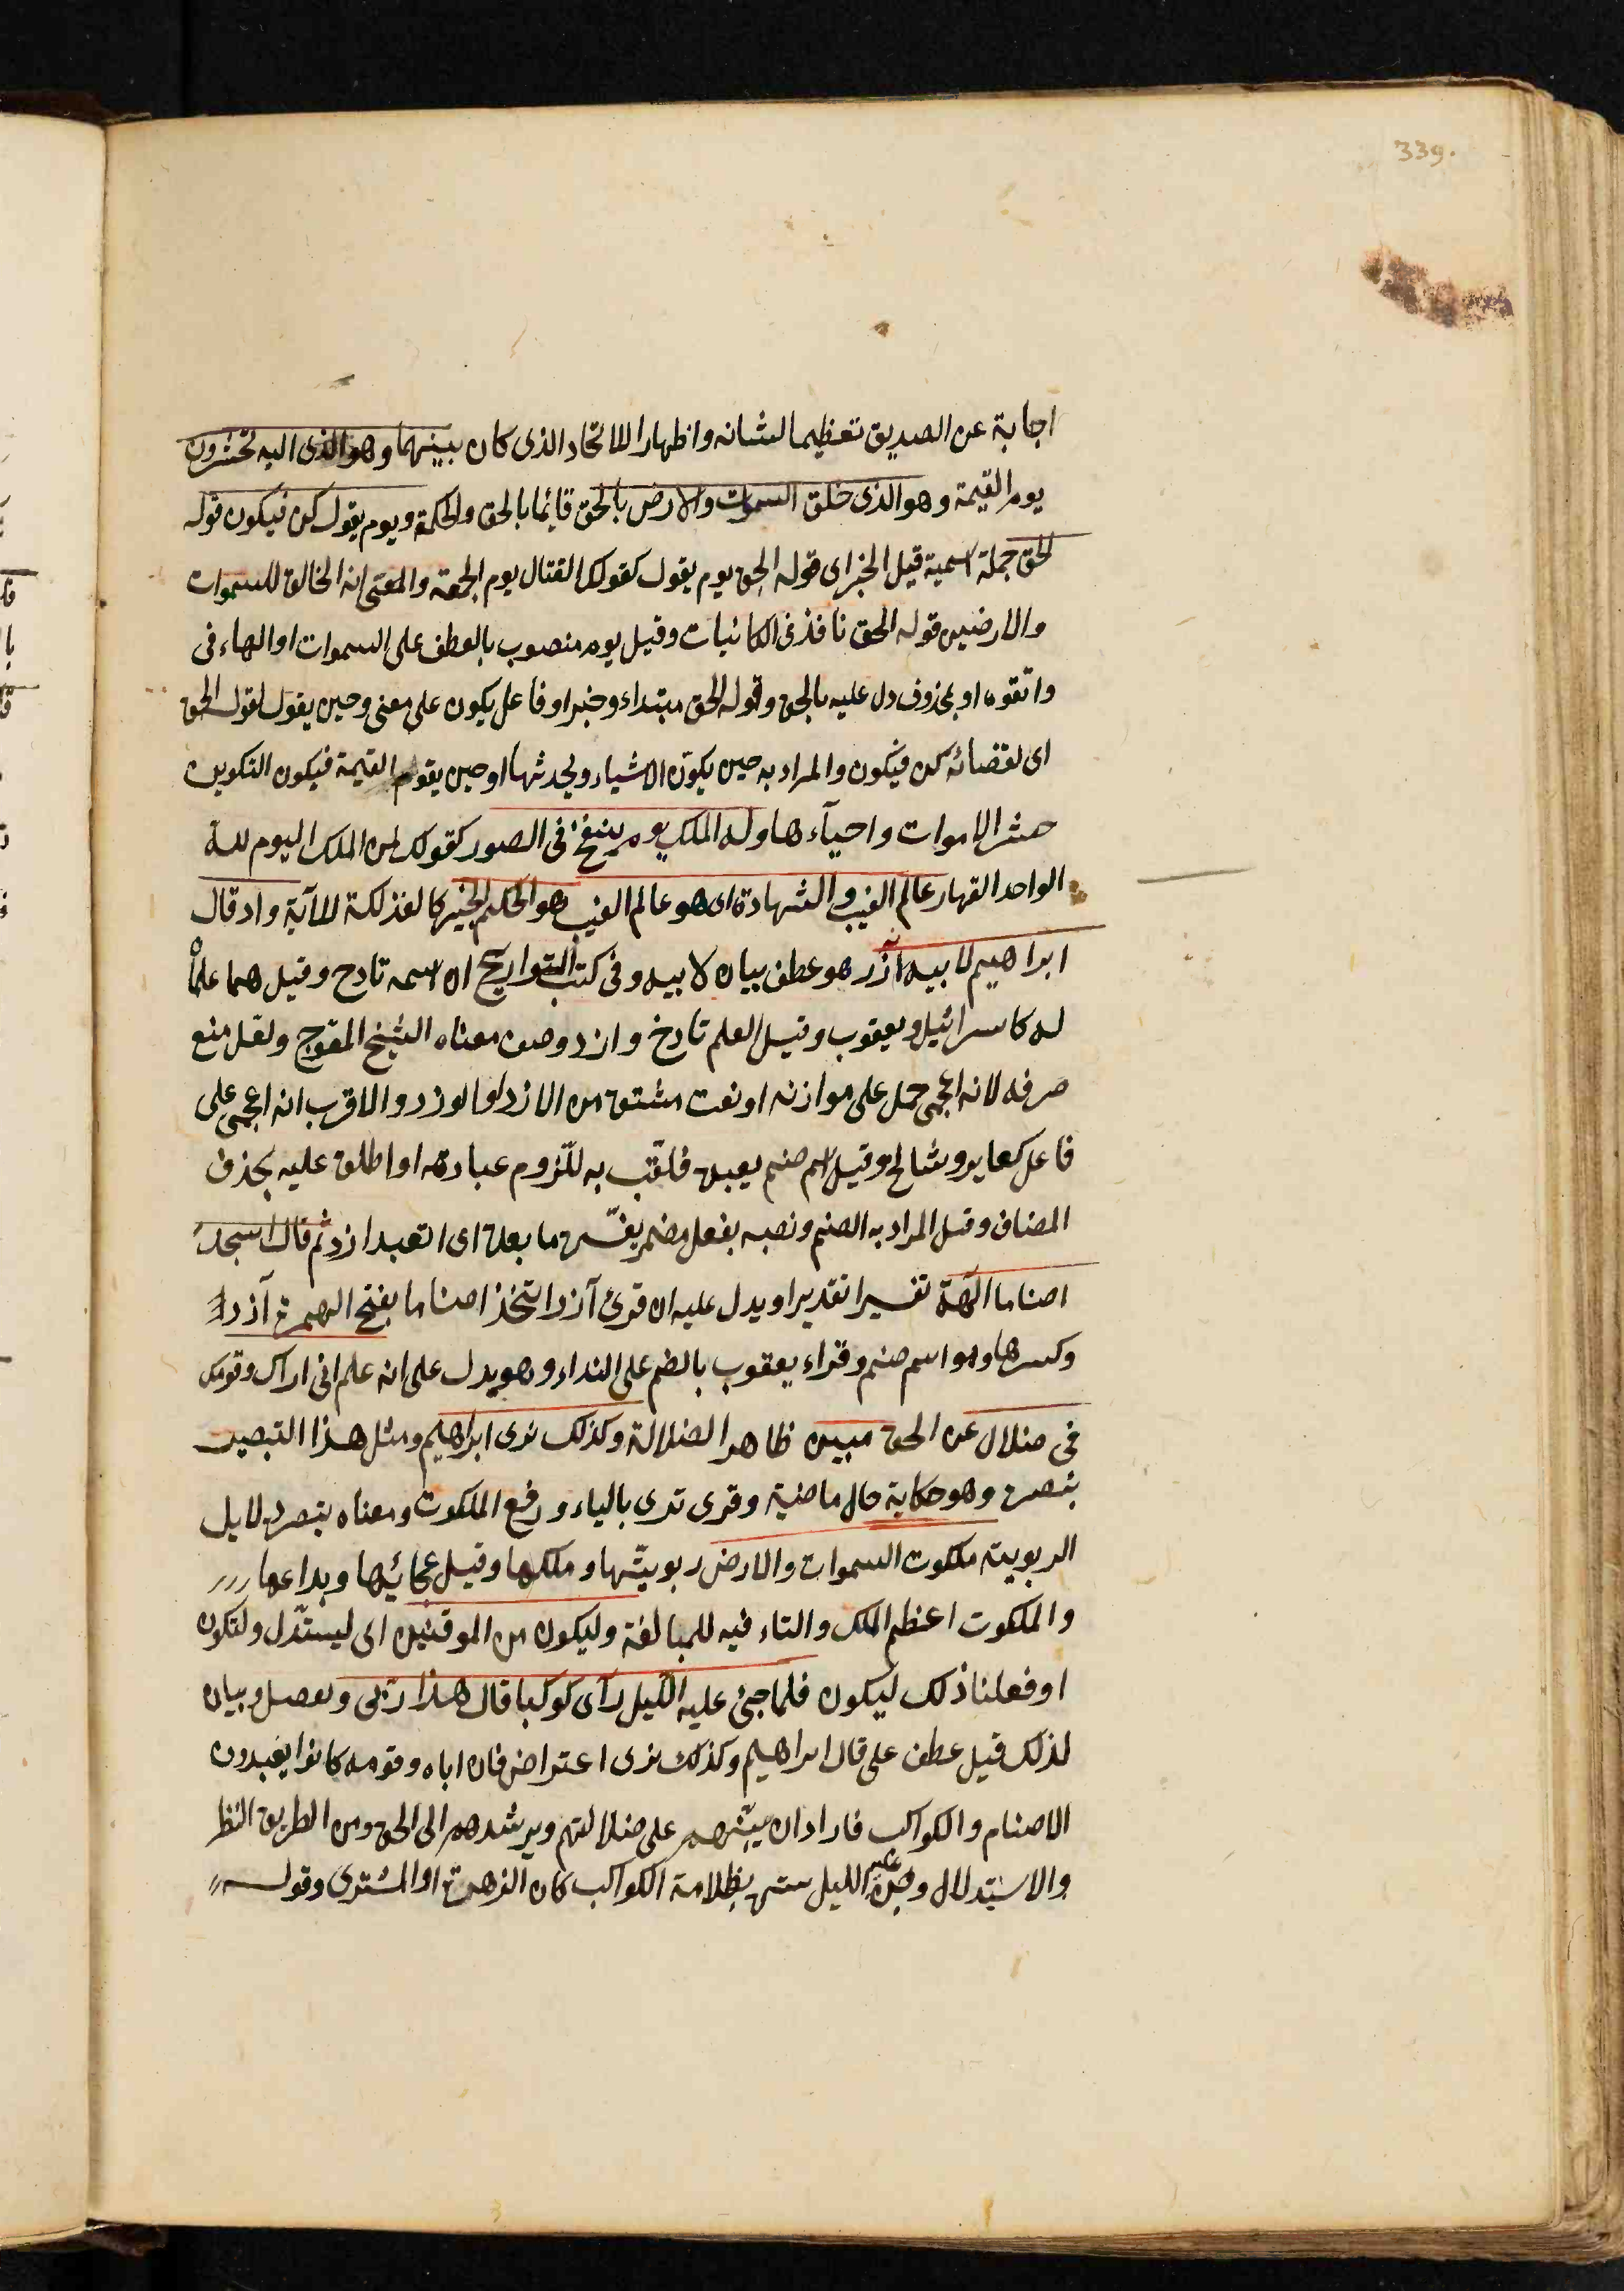 339.
اجابة عن الصديق تعظيما لشانه واظهارا للاتحاد الذى كان بينهما وهو الذى اليه تحشرون
يوم القيمة وهو الذى خلق السموات والارض بالحق قايما بالحق والحكمة ويوم يقول كن فيكون قوله
الحق جملة اسمية قيل الخبر اى قوله الحق يوم يقول كقولك القتال يوم الجمعة والمعنى انه الخالق للسموات
والارضين قوله الحق نافذ فى الكائنات وقيل يوم منصوب بالعطف على السموات او الهاء فى
واتقوه او بمحذوف دل عليه بالحق وقوله الحق مبتداء وخبر او فاعل يكون على معنى وحين يقول لقوله الحق
اى لقضائه كن فيكون والمراد به حين يكون الاشياء ويحدثها او حين يقوم القيمة فيكون التكوين
حشر الاموات واحياءها وله الملك يوم ينفخ فى الصور كقوله لمن الملك اليوم لله
الواحد القهار عالم الغيب والشهادة اى هو عالم الغيب وهو الحكيم الخبير كالفذلكة للآية واذ قال
ابراهيم لابيه آزر هو عطف بيان لابيه وفى كتب التواريخ ان اسمه تارح وقيل هما علمان
له كاسرائيل ويعقوب وقيل العلم تارخ وازر وصف معناه الشيخ المعوج ولعل منع
صرفه لانه اعجمى حمل على موازنه او نعت مشتق من الازر او الوزر والاقرب انه اعجمى على
فاعل كعابر وشالخ وقيل اسم صنم يعبده فلقب به للزوم عبادته او اطلق عليه بحذف
المضاف وقيل المراد به الصنم ونصبه بفعل مضمر يفسره ما بعده اى اتعبد ازر ثم قال اتتخذ
اصناما آلهة تفسيرا تقديرا ويدل عليه ان قرئ آزرا تتخذ اصناما بفتح الهمزة آزر
وكسرها وهو اسم صنم وقراء يعقوب بالضم على النداء وهو يدل على انه علم انى اراك وقومك
فى ضلال عن الحق مبين ظاهر الضلالة وكذلك نرى ابراهيم ومثل هذا التبصير
نبصره وهو حكاية حال ماضية وقرى ترى بالياء ورفع الملكوت ومعناه تبصره دلايل
الربوبية ملكوت السموات والارض ربوبيتها وملكها وقيل عجائبها وبدائعها
والملكوت اعظم الملك والتاء فيه للمبالغة وليكون من الموقنين اى ليستدل ولتكون
او فعلنا ذلك ليكون فلما جن عليه الليل رآى كوكبا قال هذا ربى وتفصيل وبيان
لذلك قيل عطف على قال ابراهيم وكذلك نرى اعتراض فان اباه وقومه كانوا يعبدون
الاصنام والكواكب فاراد ان ينبههم على ضلالتهم ويرشدهم الى الحق ومن الطريق النظر
والاستدلال وجن عليه الليل ستره بظلامة الكواكب كان الزهرة او المشترى وقوله